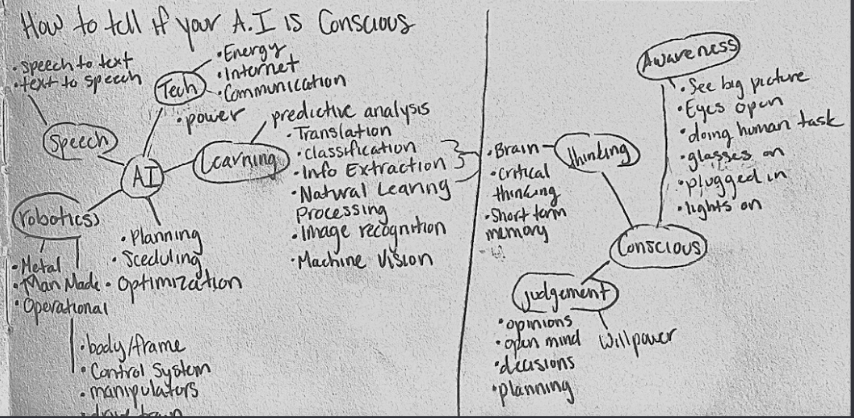 How to tell if your A.I is Conscious
• speech to text
• text to speech
Speech
Tech
• Energy
• Internet
• Communication
• power
AI
Learning
predictive analysis
• Translation
• classification
• Info Extraction
• Natural Learing
Processing
• Image recognition
• Machine Vision
robotics
• Metal
• Man Made
• Operational
• Planning
• Sceduling
• Optimization
• body/frame
• Control System
• manipulators
• drive train
• Brain
• Critical
thinking
• Short term
memory
thinking
Awareness
• See big picture
• Eyes open
• doing human task
• glasses on
• plugged in
• lights on
Conscious
judgement
• opinions
• open mind
• decisions
• planning
Willpower